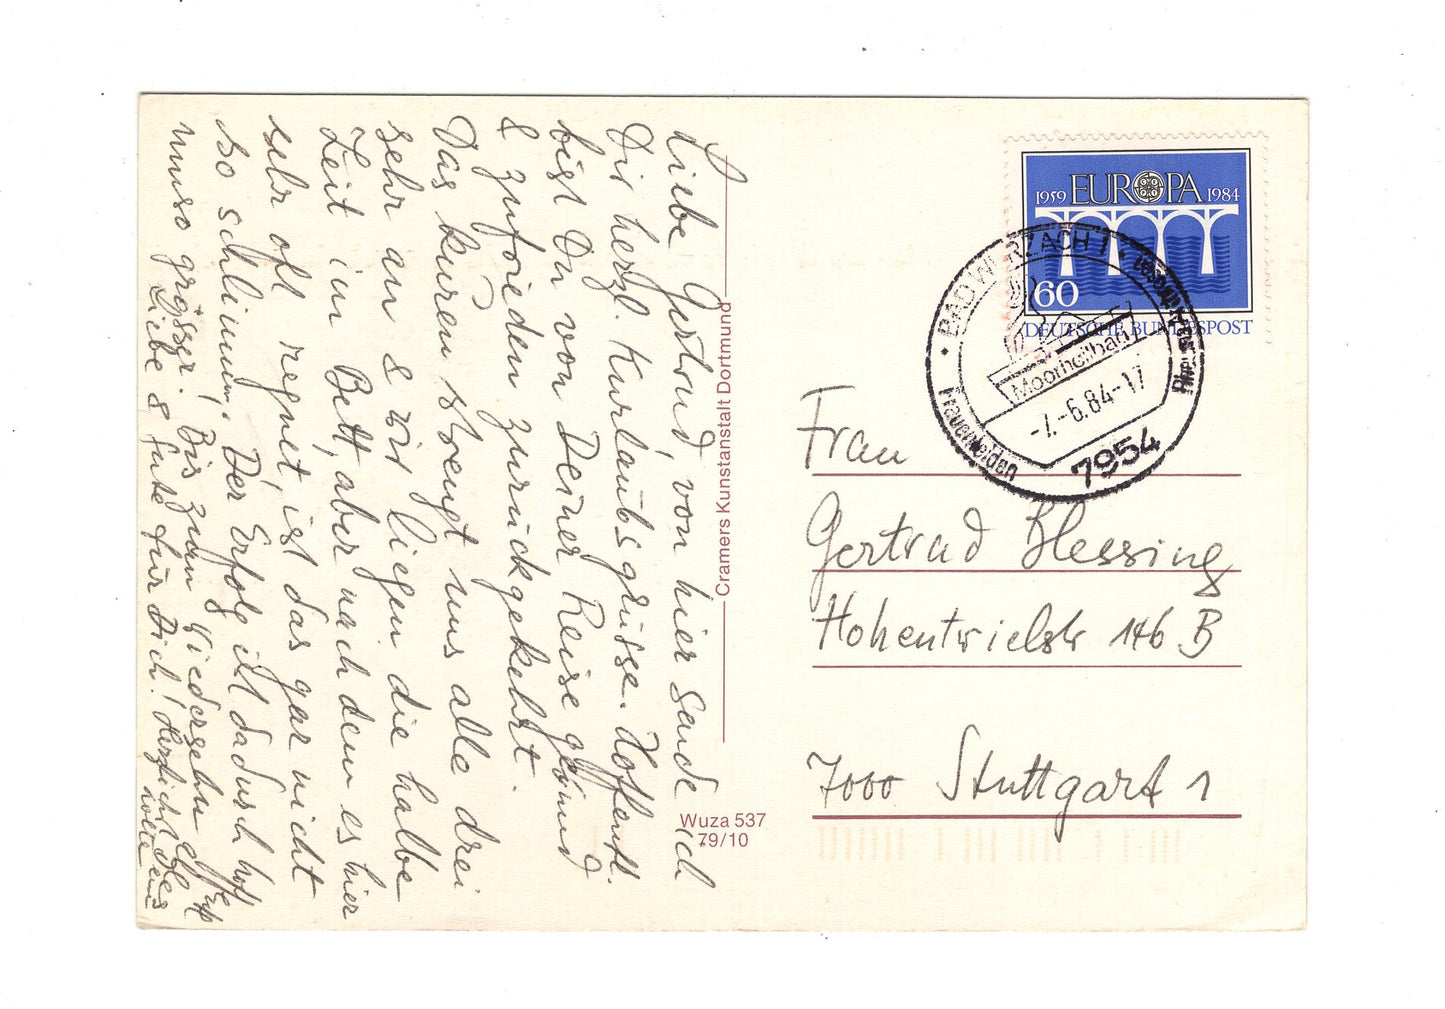 Liebe Gertrud, von hier sende ich
Dir herzl. Kurlaubsgrüsse. Hoffentl.
bist Du von Deiner Reise gesund
& zufrieden zurückgekehrt.
Das Kuren strengt uns alle drei
sehr an & wir liegen die halbe
Zeit im Bett, aber nachdem es hier
sehr oft regnet, ist das gar nicht
so schlimm. Der Erfolg ist dadurch hof
muso grösser! Bis zum Wiedersehn
Liebe & Gute für Dich! Herzlichst
Cramers Kunstanstalt Dortmund
Wuza 537
79/10
1959 EUROPA 1984
60
DEUTSCHE BUNDESPOST
BAD WURZACH 1
Moorheilbad
-7.-6.84-17
7954
Frauenleiden
Frau
Gertrud Blessing
Hohentwielstr 146 B
7000 Stuttgart 1